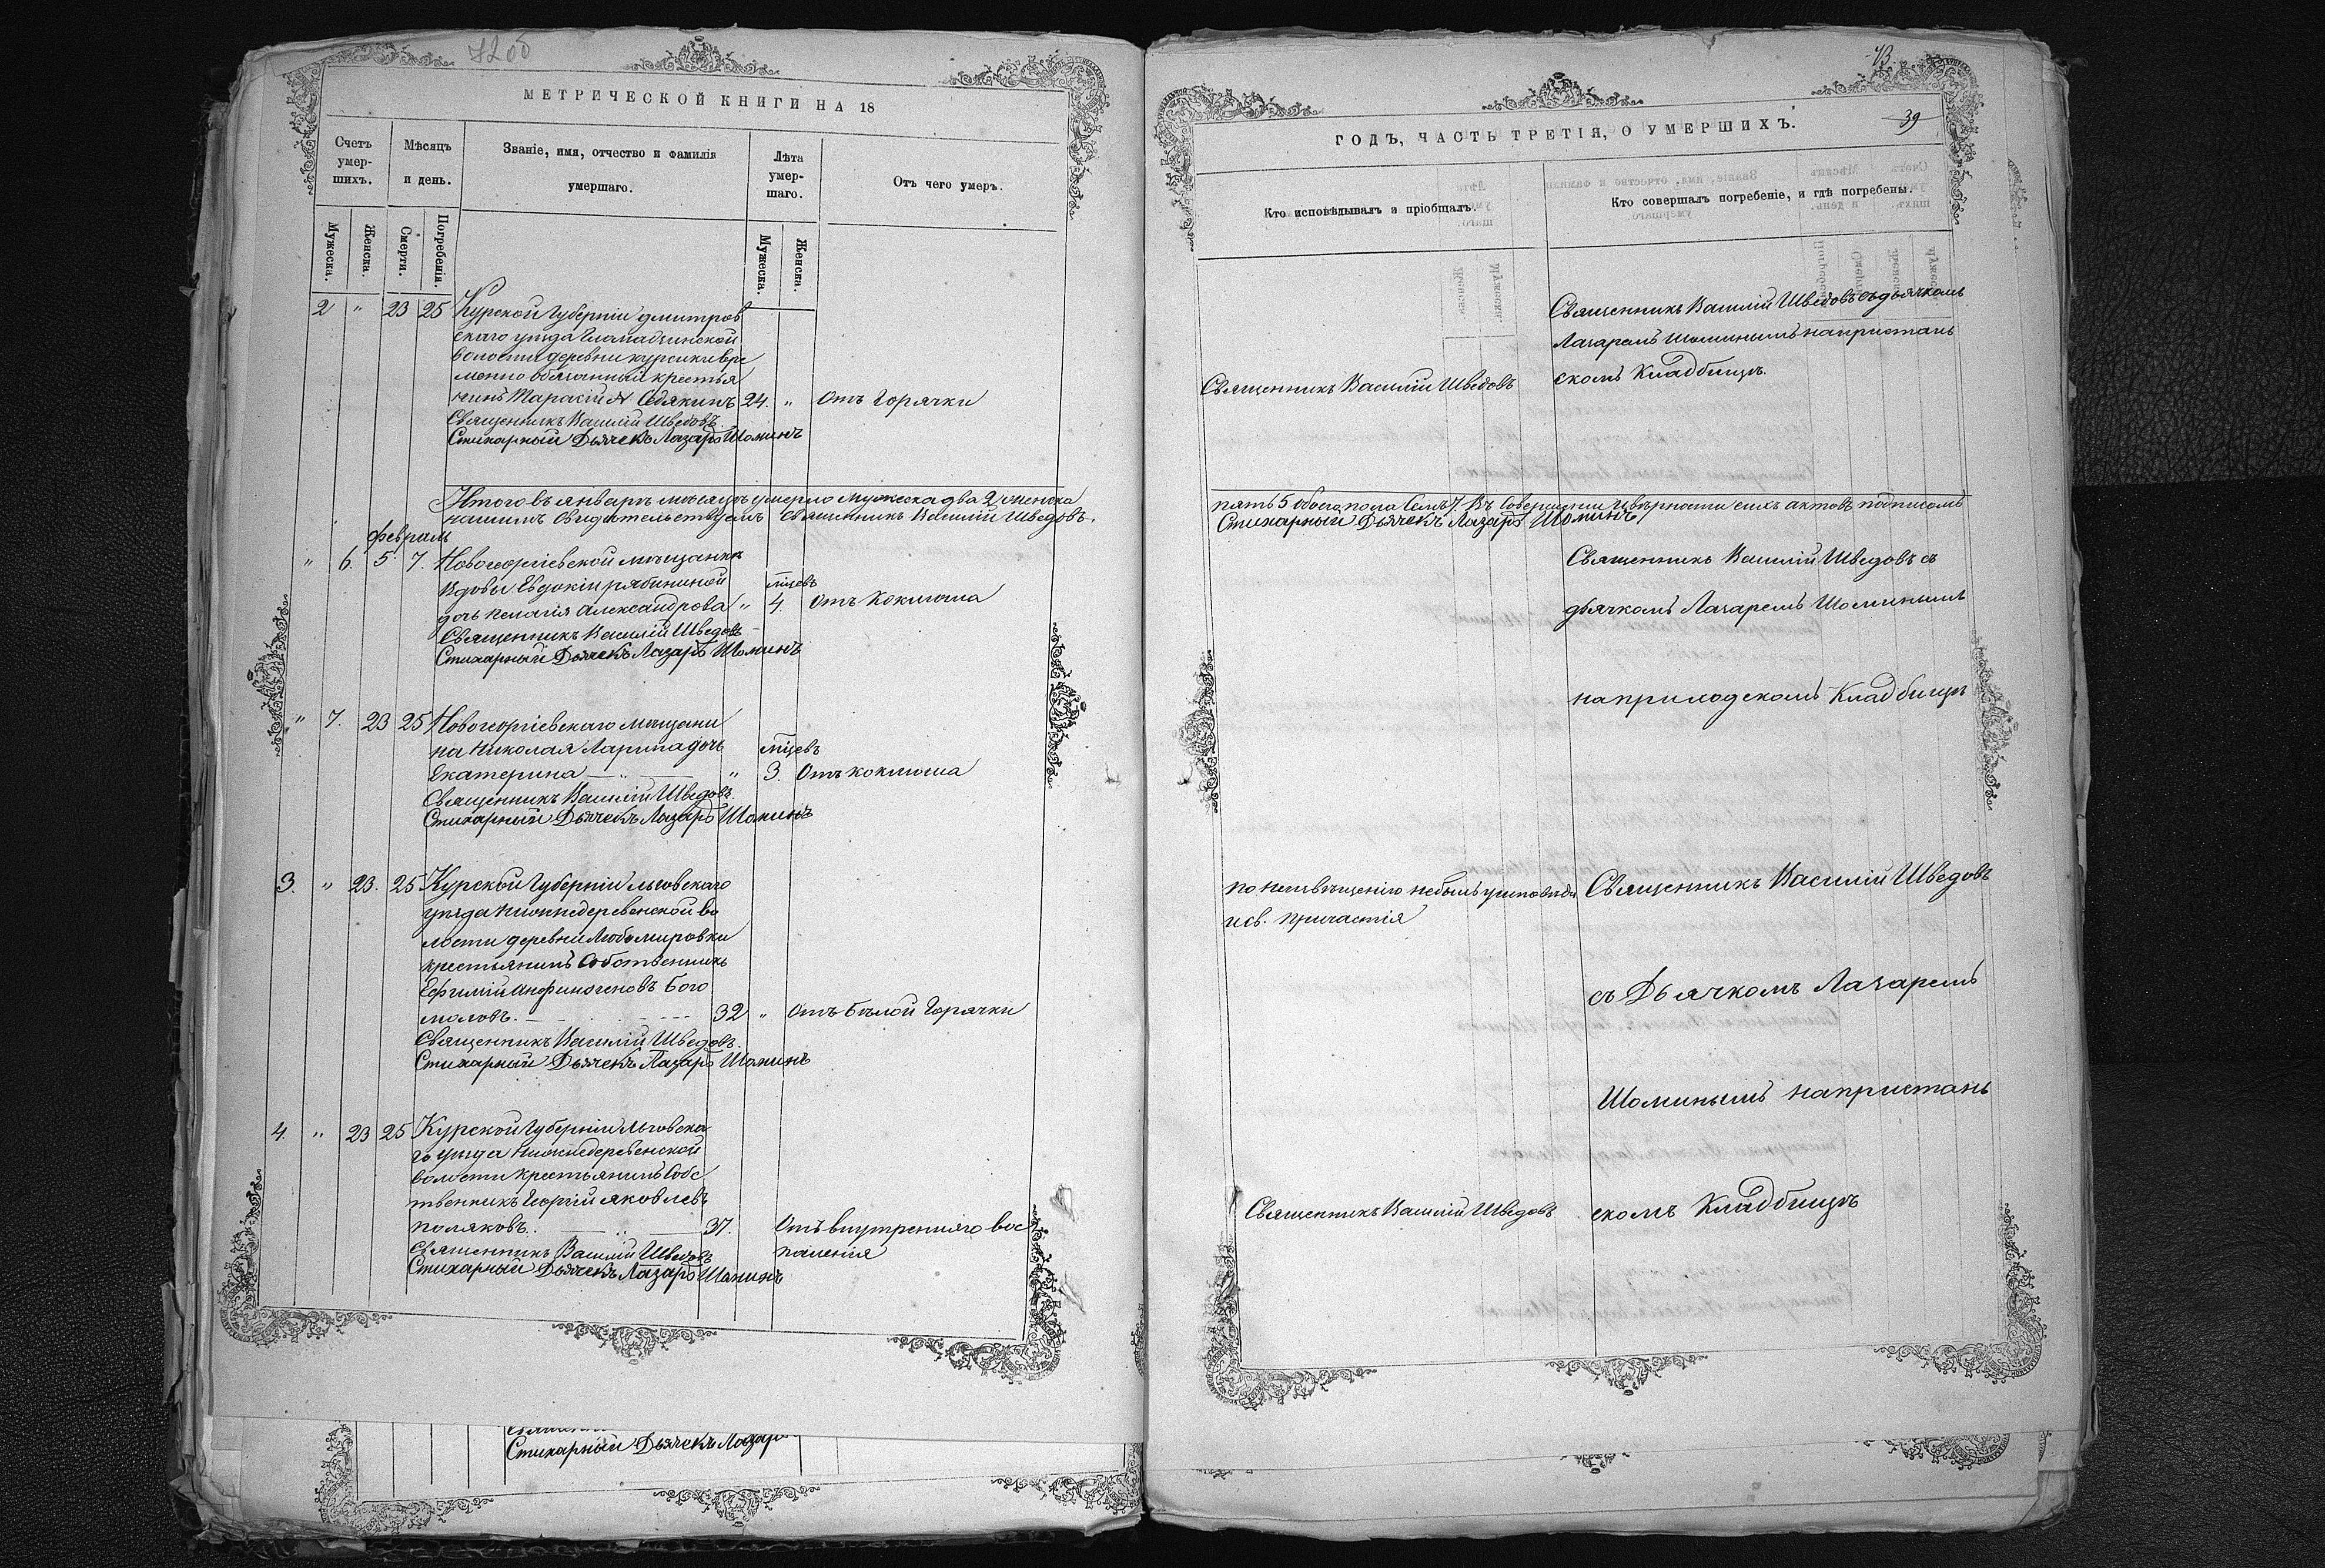 МЕТРИЧЕСКОЙ КНИГИ НА 18
Счетъ умер-шихъ.
Мѣсяцъ и день.
Званіе, имя, отчество и фамилія умершаго.
Лѣта умер-шаго.
Отъ чего умеръ.
Мужеска.
Женска.
Смерти.
Погребенія.
Мужеска.
Женска.
2 " 23 25 Курской Губерніи Дмитров
скаго уѣзда
волости деревни вре
менно обязанный крестья
нинъ Тарасій Седякинъ 24. " Отъ Горячки
Священникъ Василій Шведовъ.
Стихарный Дьячекъ Лазарь Шоминъ
Итого въ январѣ мѣсяцѣ умерло мужеска два 2, женска
нашимъ свидѣтельствуемъ Священникъ Василій Шведовъ.
февраль
" 6. 5. 7. Новогеоргіевской мѣщанки
Вдовы Евдокіи Рябининой мѣцевъ
дочь Пелагія Александрова " 4. Отъ Коклюша
Священникъ Василій Шведовъ
Стихарный Дьячекъ Лазарь Шоминъ
" 7. 23 25 Новогеоргіевскаго мѣщани
на Николая Ларина дочь мѣцевъ
Екатерина — " — " 3. Отъ коклюша
Священникъ Василій Шведовъ
Стихарный Дьячекъ Лазарь Шоминъ
3. " 23. 25 Курской Губерніи Льговскаго
уѣзда Нижнедеревенской во
лости деревни Любомировки
крестьянинъ Собственникъ
Ефимій Анфиногеновъ Бого
моловъ. 32 " Отъ бѣлой Горячки
Священникъ Василій Шведовъ.
Стихарный Дьячекъ Лазарь Шоминъ
4. " 23 25 Курской Губерніи Льговска
го уѣзда Нижнедеревенской
волости крестьянинъ Собс
твенникъ Георгій Яковлевъ
Поляковъ. — " — 37. Отъ внутренняго вос
паленія
Священникъ Василій Шведовъ
Стихарный Дьячекъ Лазарь Шоминъ
Стихарный Дьячекъ Лазарь
39
ГОДЪ, ЧАСТЬ ТРЕТІЯ, О УМЕРШИХЪ.
Кто исповѣдывалъ и пріобщалъ.
Кто совершалъ погребеніе, и гдѣ погребены.
Священникъ Василій Шведовъ съ дьячкомъ
Лазаремъ Шоминымъ на пристань
скомъ Кладбищѣ.
Священникъ Василій Шведовъ
пять 5 обоего пола Семь 7. Въ совершении и вѣрности сихъ актовъ подписомъ
Стихарный Дьячекъ Лазарь Шоминъ
Священникъ Василій Шведовъ съ
дьячкомъ Лазаремъ Шоминымъ
на приходскомъ Кладбищѣ
по неизвѣщенію небылъ у исповѣди
и св. причастія
Священникъ Василій Шведовъ
съ Дьячкомъ Лазаремъ
Шоминымъ на пристань
Священникъ Василій Шведовъ
скомъ Кладбищѣ